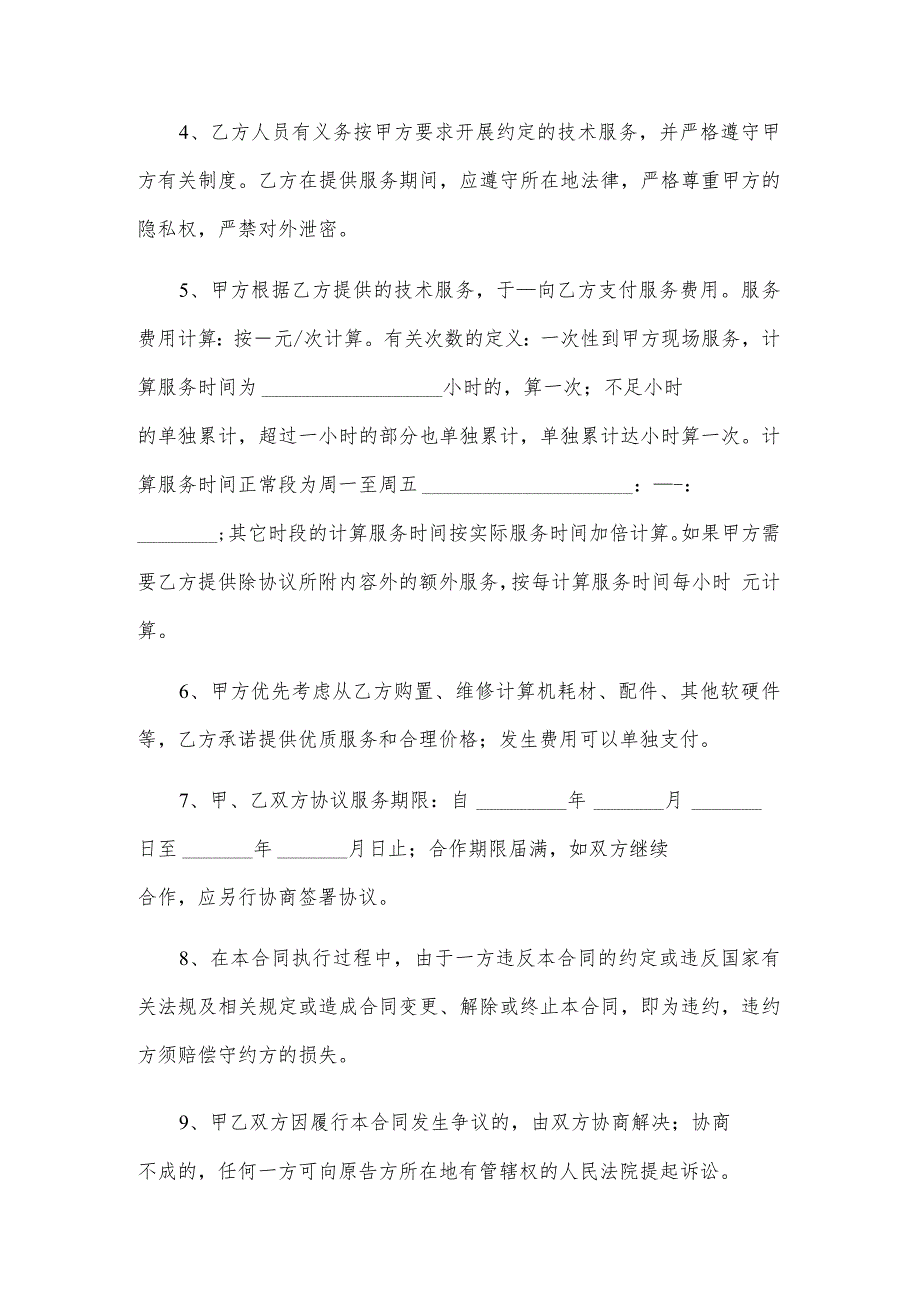 4、乙方人员有义务按甲方要求开展约定的技术服务，并严格遵守甲
方有关制度。乙方在提供服务期间，应遵守所在地法律，严格尊重甲方的
隐私权，严禁对外泄密。
5、甲方根据乙方提供的技术服务，于—向乙方支付服务费用。服务
费用计算：按－元/次计算。有关次数的定义：一次性到甲方现场服务，计
算服务时间为 __________________小时的，算一次；不足小时
的单独累计，超过一小时的部分也单独累计，单独累计达小时算一次。计
算服务时间正常段为周一至周五 _____________________：—-：
________;其它时段的计算服务时间按实际服务时间加倍计算。如果甲方需
要乙方提供除协议所附内容外的额外服务，按每计算服务时间每小时 元计
算。
6、甲方优先考虑从乙方购置、维修计算机耗材、配件、其他软硬件
等，乙方承诺提供优质服务和合理价格；发生费用可以单独支付。
7、甲、乙双方协议服务期限：自 _________年 _______月 _______
日至 _______年 _______月日止；合作期限届满，如双方继续
合作，应另行协商签署协议。
8、在本合同执行过程中，由于一方违反本合同的约定或违反国家有
关法规及相关规定或造成合同变更、解除或终止本合同，即为违约，违约
方须赔偿守约方的损失。
9、甲乙双方因履行本合同发生争议的，由双方协商解决；协商
不成的，任何一方可向原告方所在地有管辖权的人民法院提起诉讼。